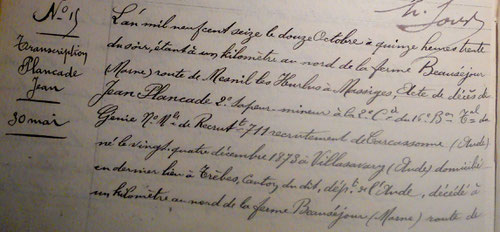 N° 15
Transcription
Plancade
Jean
30 mai
L'an mil neuf cent seize le douze Octobre à quinze heures trente
du soir, étant à un kilomètre au nord de la ferme Beauséjour
(Marne) route de Mesnil les Hurlus à Massiges Acte de décès de
Jean Plancade 2e Sapeur-mineur à la 2e Cie du 16e Bon Tal du
Génie N° Mle de Recrutt 711 recrutement de Carcassonne (Aude)
né le vingt quatre décembre 1873 à Villasavary (Aude) domicilié
en dernier lieu à Trèbes, Canton du dit, dépt de l'Aude, décédé à
un kilomètre au nord de la ferme Beauséjour (Marne) route de